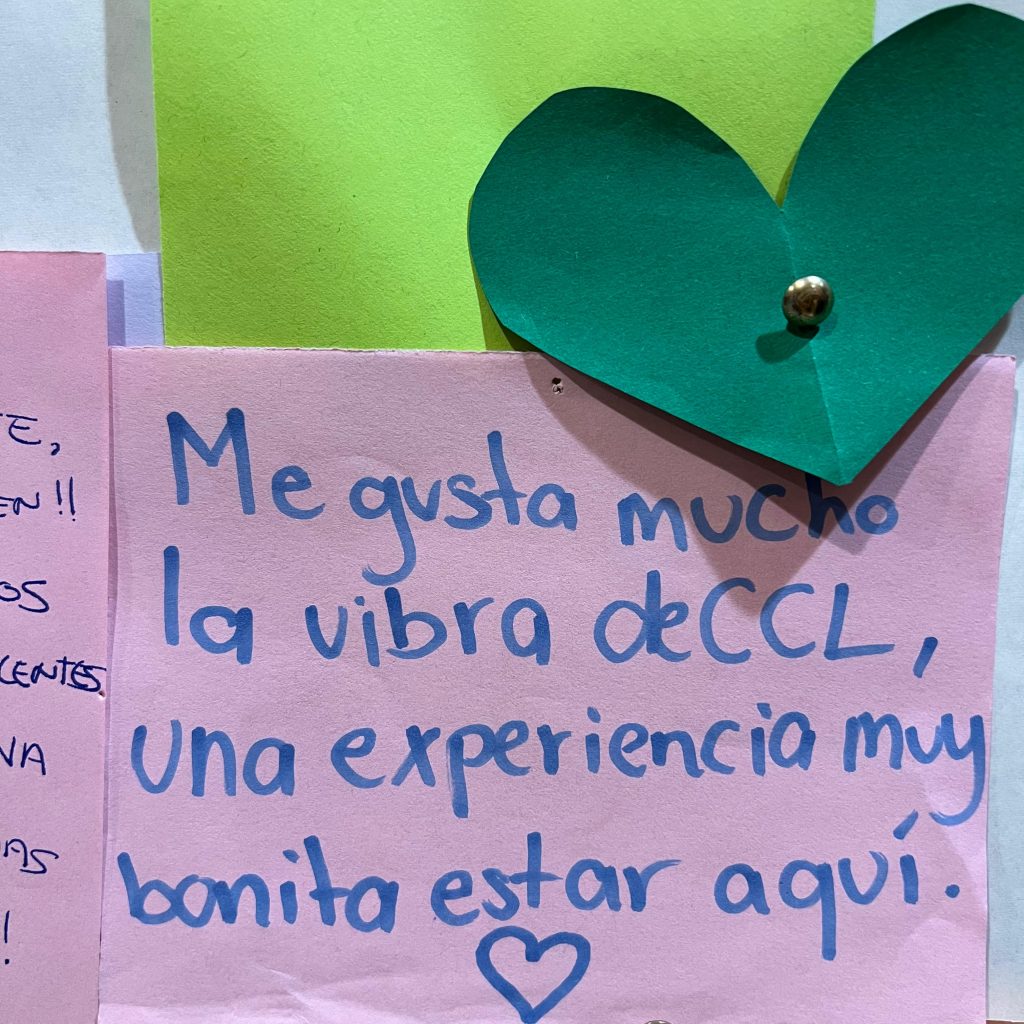 Me gusta mucho
la vibra de CCL,
una experiencia muy
bonita estar aquí.
TE,
EN!!
OS
CENTES
NA
DAS
!